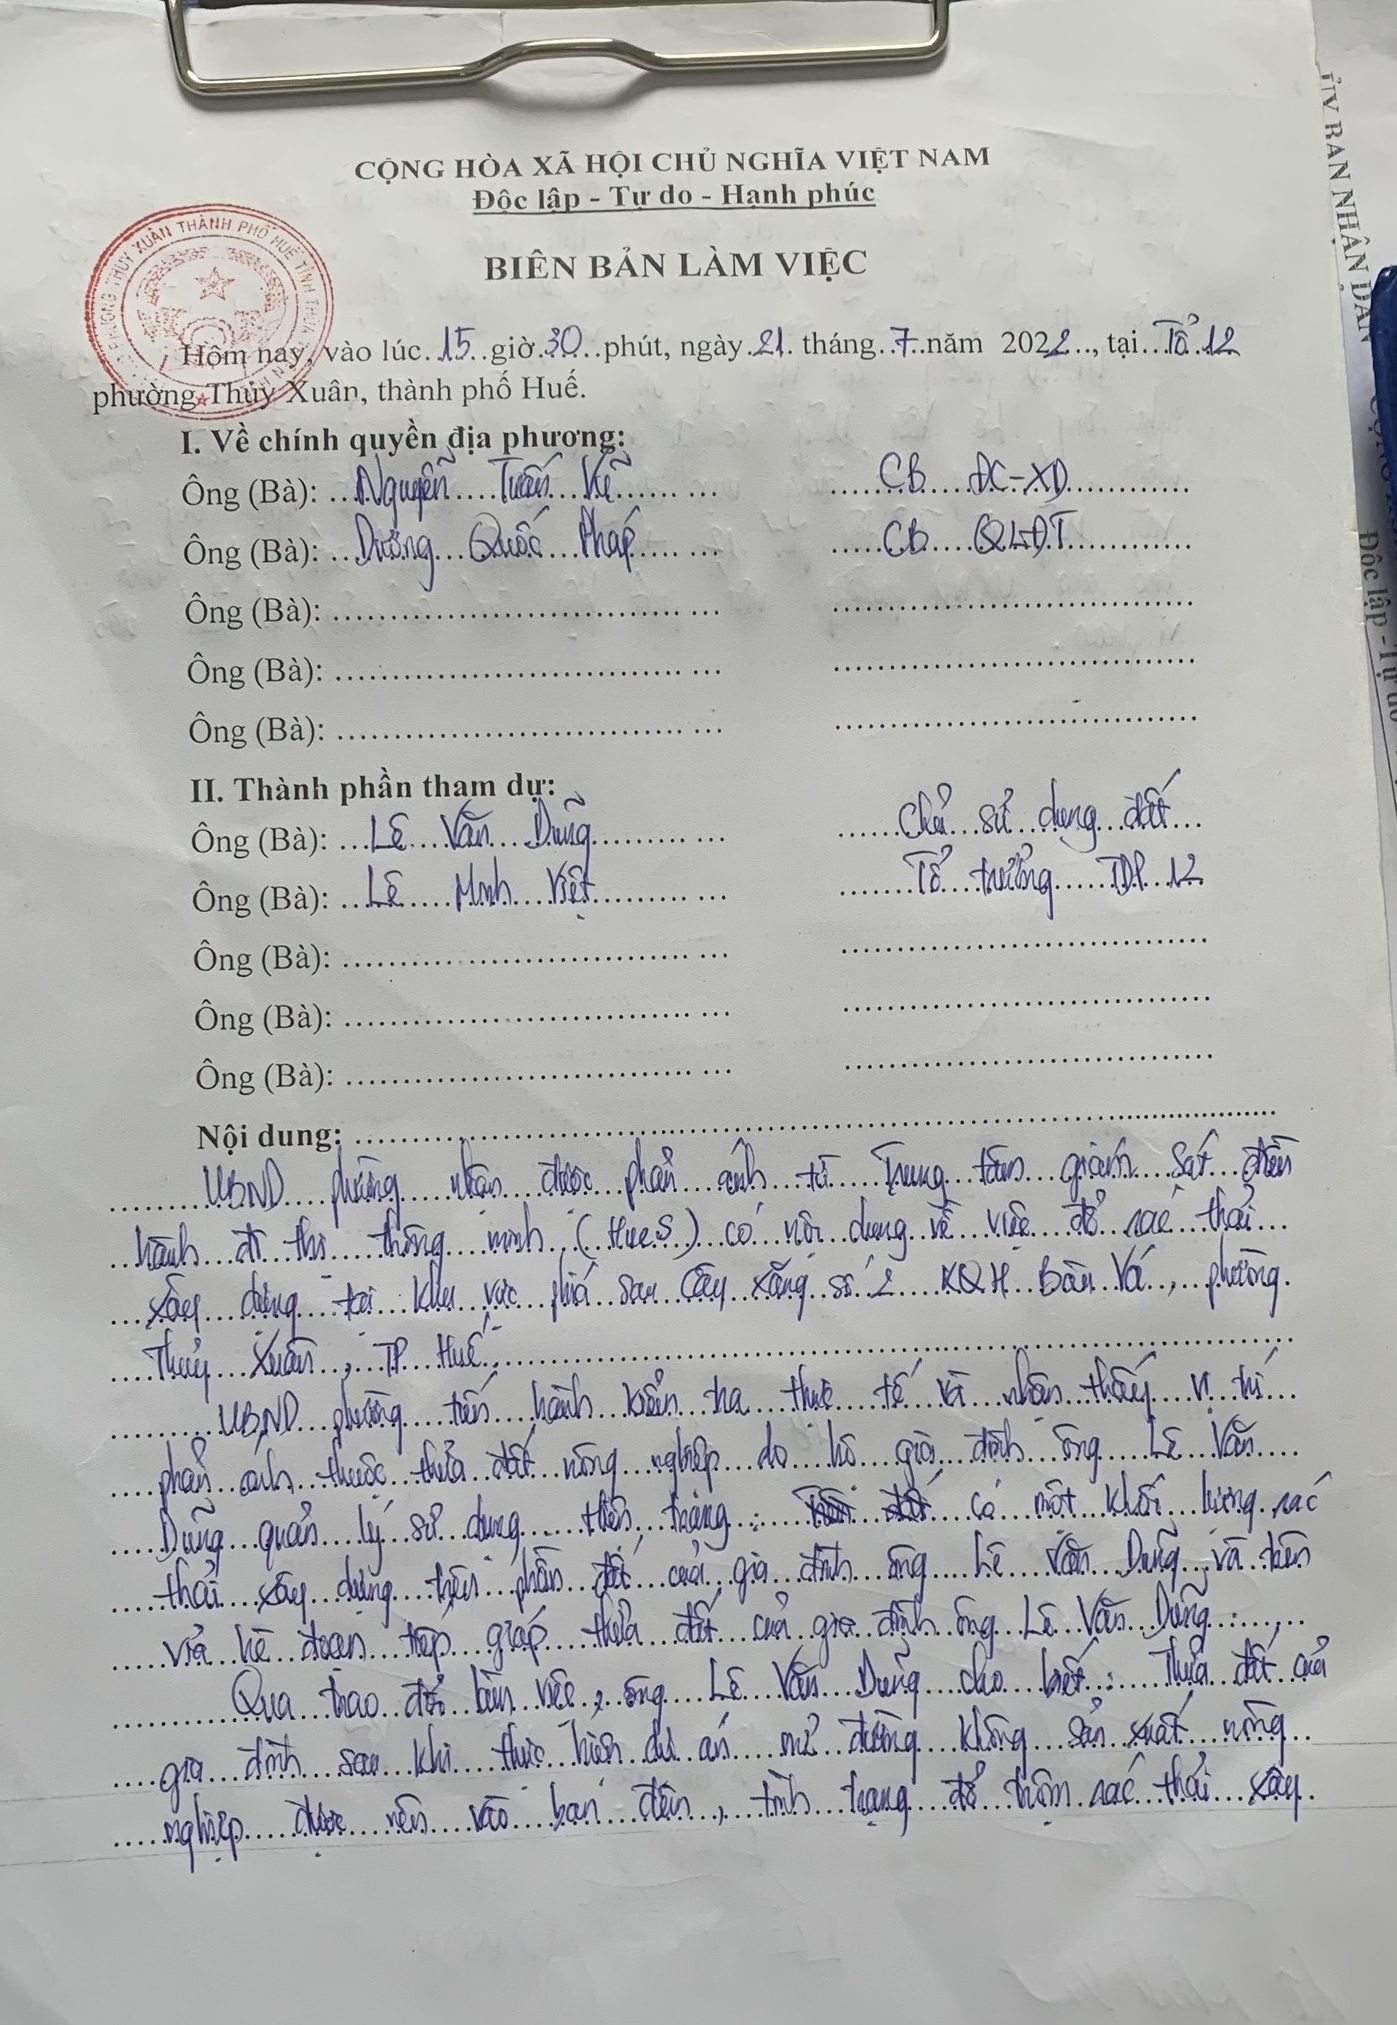 CỘNG HÒA XÃ HỘI CHỦ NGHĨA VIỆT NAM
Độc lập - Tự do - Hạnh phúc
BIÊN BẢN LÀM VIỆC
PHƯỜNG THỦY XUÂN THÀNH PHỐ HUẾ TỈNH THỪA
Hôm nay, vào lúc 15 giờ 30 phút, ngày 21 tháng 7 năm 2022, tại Tổ 12
phường Thủy Xuân, thành phố Huế.
I. Về chính quyền địa phương:
Ông (Bà): Nguyễn Tuấn Vĩ CB ĐC-XD
Ông (Bà): Dương Quốc Pháp CB QLĐT
Ông (Bà):
Ông (Bà):
Ông (Bà):
II. Thành phần tham dự:
Ông (Bà): Lê Văn Dũng Chủ sử dụng đất
Ông (Bà): Lê Minh Việt Tổ trưởng TDP 12
Ông (Bà):
Ông (Bà):
Ông (Bà):
Nội dung:
UBND phường nhận được phản ánh từ Trung tâm giám sát điều
hành đô thị thông minh (HueS) có nội dung về việc đổ rác thải
xây dựng tại khu vực phía sau Cây xăng số 2 KQH Bàu Vá, phường
Thủy Xuân, TP Huế.
UBND phường tiến hành kiểm tra thực tế và nhận thấy vị trí
phản ánh thuộc thửa đất nông nghiệp do hộ gia đình ông Lê Văn
Dũng quản lý sử dụng. Hiện trạng: có một khối lượng rác
thải xây dựng trên phần đất của gia đình ông Lê Văn Dũng và trên
vỉa hè đoạn tiếp giáp thửa đất của gia đình ông Lê Văn Dũng.
Qua trao đổi làm việc, ông Lê Văn Dũng cho biết: Thửa đất của
gia đình sau khi thực hiện dự án mở đường không sản xuất nông
nghiệp được nên vào ban đêm, tình trạng đổ trộm rác thải xây
ỦY BAN NHÂN DÂN
Độc lập - Tự do